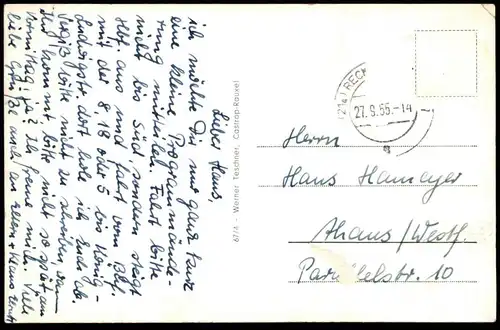 Lieber Hans,
ich möchte Dir nur ganz kurz
eine kleine Programmände-
rung mitteilen. Fahrt bitte
nicht bis Süd, sondern steigt
Hbf. aus und fahrt vom Bhf.
mit der 8, 18 oder 5 bis König-
Ludwigstr. dort hole ich Euch ab.
Vergiß bitte nicht zu schreiben, wann
Ihr kommt bitte nicht so spät am
Vormittag, ja? Ich freue mich. Viele
liebe Grüße auch an Ellen + Klaus
67/4 - Werner Teschner, Castrop-Rauxel
(21a) RECK
27.9.55.-14
a
Herrn
Hans Hameyer
Ahaus/Westf.
Parallelstr. 10